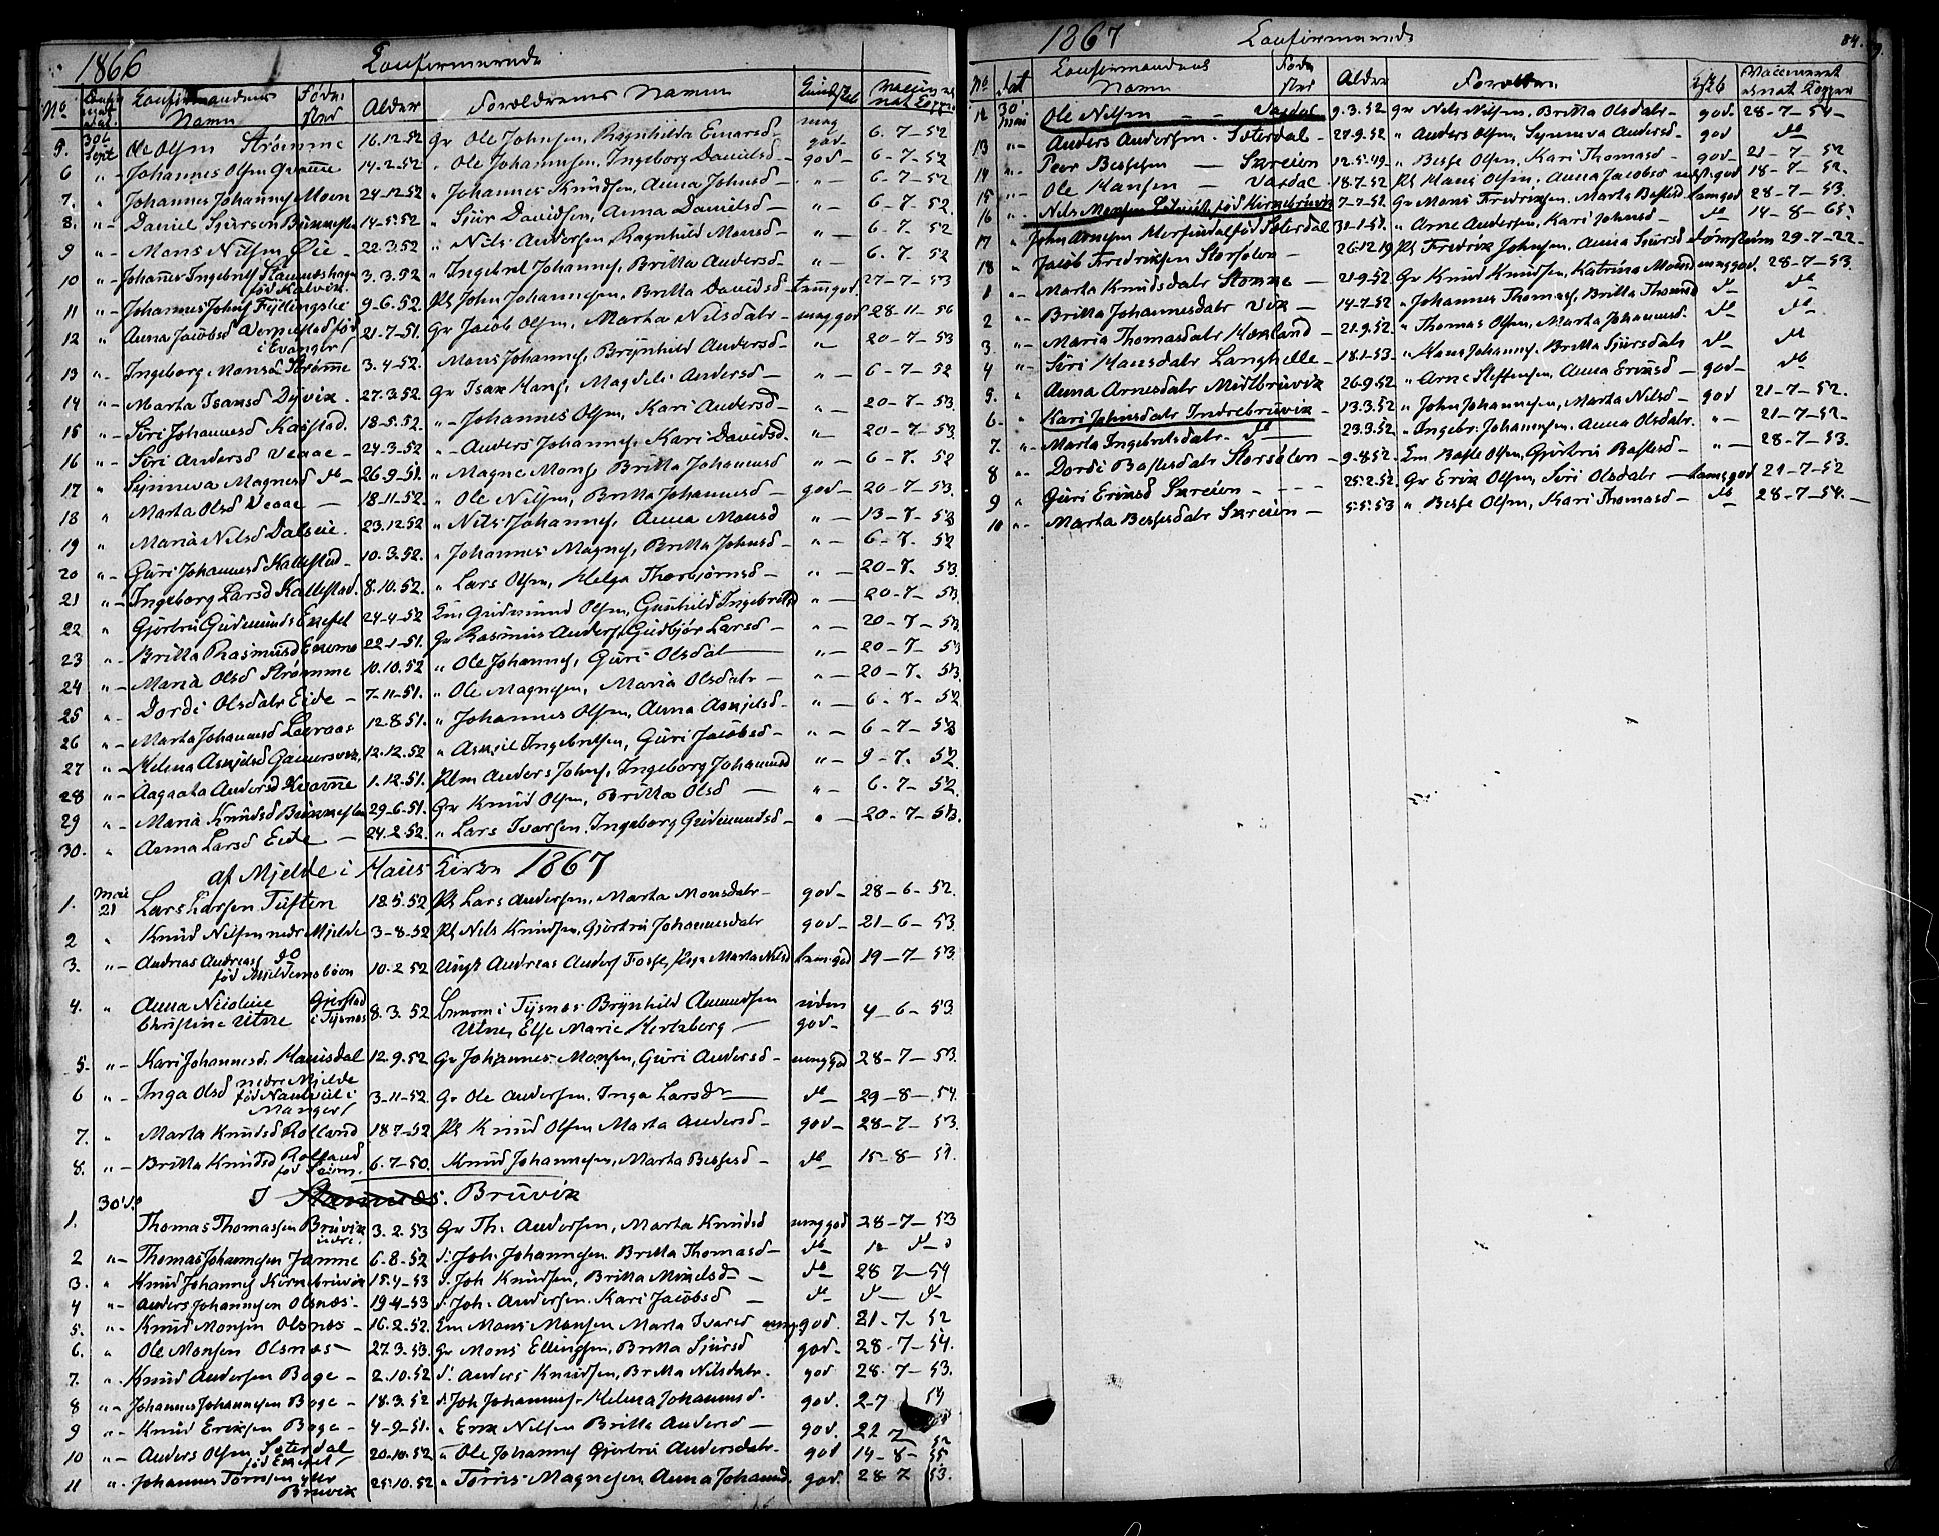 1866 Confirmerede
No. Confirmandens Navn Føde Sted Alder Forældrenes Navne
5. 30te Septe Ole Olsen Strømme 16.12.52 Gr Ole Johnsen, Ragnhilda Einarsd- god- 6-7-52
6 "- Johannes Olsen 14-2-52 " Ole Johannesen, Ingeborg Danielsd- god- 6-7-52
7. " Johannes Johannes Moen 24-12-52 " Johannes Knudsen, Anna Johnsd- " - 6-7-52
8. "- Daniel Sjursen 14-5.52 " Siur Davidsen, Anna Danielsd- " - 6-7.52.
9 "- Mons Nilsen Øie - 22.3.52 " Nils Andersen Ragnhild Monsd- " - 6.7.52
10 "- Johannes Ingebrets Stamneshagen 3.3.52 " Ingebret Johannes, Britta Andersd- " - 6.7.52
født Kalvik.
11 "- Johannes Johns Fyllingslie 9-6.52. Pl John Johannesen, Britta Davidsd- 27-7-53
12 " Anna Jacobsd født 21.7-51. Gr Jacob Olsen, Marta Nilsdatr- mgg god 28-11-56
i Evanger/
13 "- Ingeborg Monsd Strømme 3.4-52. Mons Johannes, Brynhild Andersd- " - 20-7-53
14 "- Marta Isaksd Dyvik. 27.3.52 Gr Isak Hans, Magdeli Andersd- " - 6-7-52
15 "- Siri Johannesd Kaastad. 18-5.52. "- Johannes Olsen, Kari Andersd- " - 20-7-53.
16 "- Siri Andersd Veaae- 24.3-52 "- Anders Johannes, Kari Davidsd. " - 20-7-53.
17 " Synneva Magnesd do- 26-9-51. " Magne Mons, Britta Johannesd " - 6-7.52
18 " Marta Olsd Veaae - 18-11-52. " Ole Nilsen, Britta Johannesd- god- 20-7-53.
19 " Maria Nilsd Dalseie. 23.12.52 " Nils Johannes, Anna Monsd " - 13-7-53
20 "- Guri Johannesd Kallestad- 10.3.52. " Johannes Magnes, Britta Johnsd- " - 6-7.52
21 "- Ingeborg Larsd Kallestad. 8.10.52. " Lars Olsen, Helga Thorbjørnsd- " - 20-7.53.
22 " Gjertru Gudmunds 24-4-52 Em Gudmund Olsen, Gunhild Ingebretsd " - 20-7-53.
23 "- Britta Rasmusd 22-1-51. Gr Rasmus Anders, Gudbjør Larsd- " - 20-7-53.
24 "- Maria Olsd Strømme 10.10.52 " Ole Johannes, Guri Olsdat- " - 20-7-53
25 "- Dordi Olsdatr Eide- 7-11-51. " Ole Magnesen, Maria Olsdatr- " - 20-7.53.
26 "- Marta Johannesd 12.8.51. " Johannes Olsen, Anna Askjelsd- " - 6-7-52
27 "- Helena Askjelsd Gammersvik, 12.12.52 " Askjel Ingebretsen, Guri Jacobsd- " - 6-7-53
28 "- Aagaata Andersd 1.12.51. Plm Anders Johns, Ingeborg Johannesd " - 9-7.52.
29 "- Maria Knudsd 29-6-51. Gr Knud Olsen, Britta Olsd - " - 6.7.52.
30. " Anna Larsd Eide - 24.2.52. " Lars Ivarsen, Ingeborg Gudmundsd- " - 20-7-53.
af Mjelde i Haus Kirke 1867
1. Mai 21 Lars Larsen Tuften 18.5.52 Pl Lars Andersen, Marta Monsdatr- god- 28-6-52.
2 " Knud Nilsen nedre Mjelde 3-8-52 Pl Nils Knudsen, Gjertru Johannesdatr god- 21-6-53.
3. "- Andreas Andreass do 10.2.52 Ungk Andreas Anders Fosse, Pige Marta Nilsd 19-7-53.
født
4. " Anna Nicoline Gjerstad 8.3.52 i Tysnes Brynhild Amundsen 4-6-53.
Christine Utne i Tysnes Utne, Else Marie Hertzberg- god-
5. "- Kari Johannesd. Hauisdal 12.9.52 Gr Johannes Monsen, Guri Andersd- mgg god 28-7-53.
6 "- Inga Olsd nedre Mjelde 3-11-52. Gr Ole Andersen, Inga Larsd- do 29-8-54.
født i Manger/
7. " Marta Knudsd Rolland 18.7-52 Pl Knud Olsen Marta Andersd- god- 28-7-53.
8. "- Britta Knudsd Rolland 6.7-50. Knud Johannesen, Marta Bessesd- do 15-8-51.
født Seim.
30' I Stamnes. Bruvik
1. Thomas Thomassen Bruvik 3.2.53 Gr Th. Andersen, Marta Knudsd mgg god 28-7-53
2 "- Thomas Johannesen Jamne 6-8-52 d. Joh. Johannesen. Britta Thomasd- do
3. " Knud Johannes Kirnebruvik 15.4-53 d. Joh Knudsen, Britta Mikelsd- do 28 7-54
4 "- Anders Johannesen Olsnes- 19.4-53 d. Joh. Andersen. Kari Jacobsd - do
5. "- Knud Monsen Olsnes - 16.2.52. Em Mons Monsen Marta Ivarsd mgg god. 21-7-52
6. " Ole Monsen Olsnes- 27.3.53. Gr Mons Ellingsen, Britta Sjursd god- 28-7-54.
7. " Knud Andersen Boge- 2.10.52 d. Anders Knudsen, Britta Nilsdatr. god 28.7-53.
8 "- Johannes Johannesen Boge- 18.3.52 d. Joh Johannes- Helena Johannesd. god. 2-7 54
9 "- Knud Eriksen Boge- 4-9-51. " Erik Nilsen Britta Andersd - god. 22 7
10 "- Anders Olsen Soterdal 20.10.52 " Ole Johannes Gjertru Andersdatr. god 14-8-55
11 " Johannes Tørrisen ytre Bruvik 25.10.52 " Torris Magnesen Anna Johannd. god. 28 7 53.
1867 Confirmerede 84.
No Dat Confirmandens Navn Føde Sted Alder Forældre
12 30' Mai Ole Nilsen - - Vasdal 9.3.52 Gr Nils Nilsen, Britta Olsdatr- god- 28-7-54-
13 "- Anders Andersen. Soterdal- 27.9.52 " Anders Olsen, Synneva Andersd- god do
14 "- Peer Bessesen - Skreien 12.5.49 " Besse Olsen, Kari Thomasd- god- 21-7-52
15 "- Ole Hansen - Vasdal 18.7.52 Pl Hans Olsen, Anna Jacobsd god 18-7-52.
16 "- Nils Monsen født Kirnebruvik 7-7-52. Gr Mons Fredriksen, Marta Bastesd 28-7-53.
17 " John Arnesen født Soterdal 31-1-51. " Arne Andersen, Kari Johnsd- do 14-8-65?
18 " Jacob Fredriksen Storsolen - 26.12.19 Pl Fredrik Johnsen, Anna Sjursd 29-7-22-
1 "- Marta Knudsdatr - 21.9.52 Gr Knud Knudsen, Katrina Monsd mgg god. 28-7-53.
2 "- Britta Johannesdatr Vik - 14.7.52 " Johannes Thomas, Britta Thomasd do do
3. "- Maria Thomasdatr - 21.9.52. " Thomas Olsen, Marta Johannesd. do do
4 "- Siri Hansdatr Langhelle- 18.1.53. " Hans Johannes, Britta Sjursdatr do do
5. " Anna Arnesdatr Midtbruvik 26.9.52 " Arne Steffensen, Anna Eriksd- god- do
6- " Kari Johnsdatr Indrebruvik - 13.3.52 " John Johannesen, Marta Nilsd- god 21-7-52.
7. "- Marta Ingebretsdatr- do 23.3.52 " Ingebr. Johannesen, Anna Olsdatr. " - 21-7-52-
8 "- Dordi Bastesdatr Storsolen - 9.8.52. Em Baste Olsen, Gjertru Bastesd- " - 28-7-53.
9 " Guri Eriksd Skreien - - - - 25.2.52. Gr Erik Olsen, Siri Olsdatr- 21-7-52
10 "- Marta Bessesdatr Skreien- 5.5.53 " Besse Olsen, Kari Thomasd- do 28-7-54.-